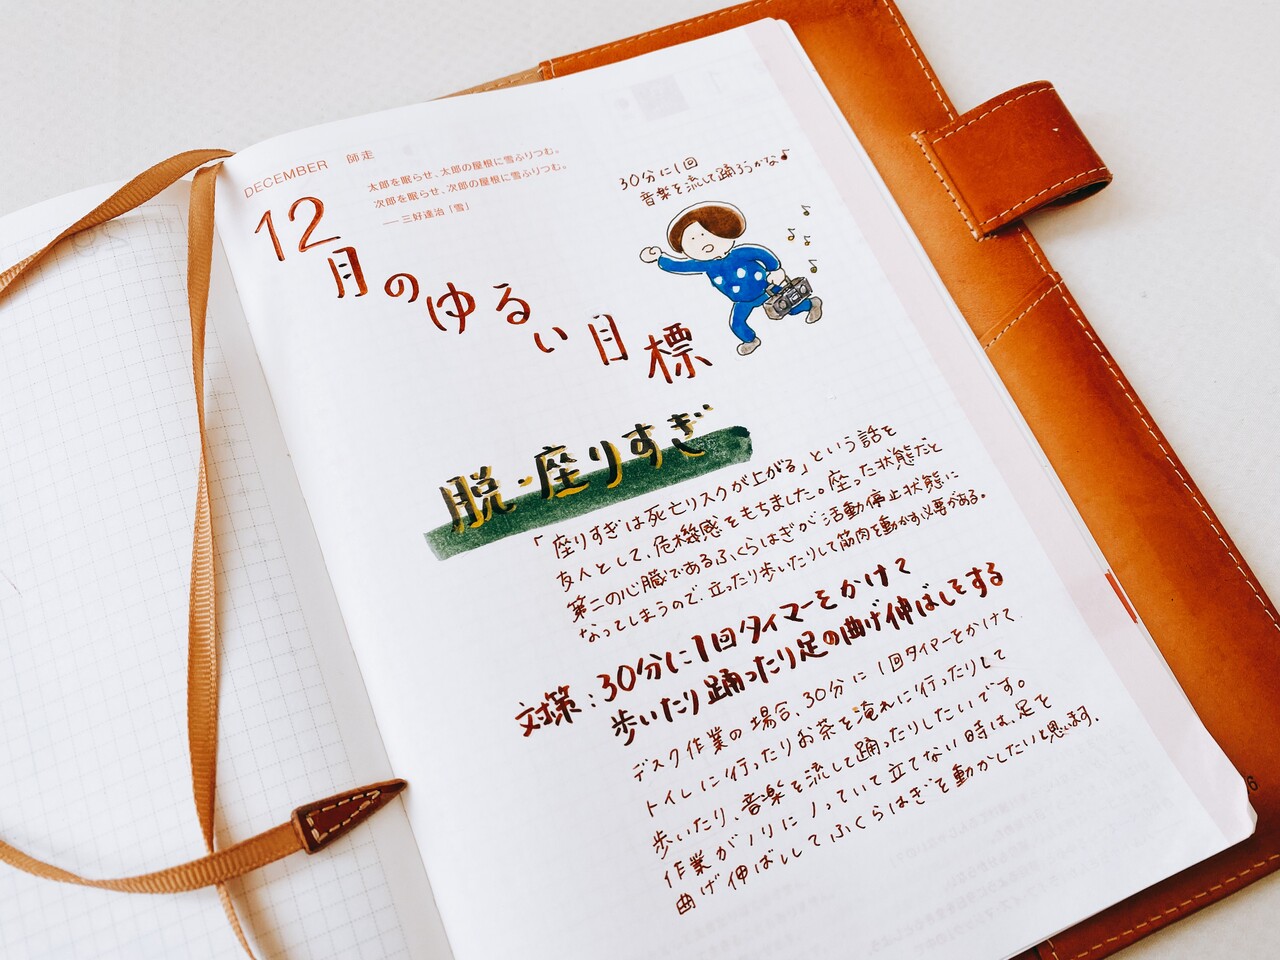 DECEMBER 師走
太郎を眠らせ、太郎の屋根に雪ふりつむ。
次郎を眠らせ、次郎の屋根に雪ふりつむ。
── 三好達治「雪」
30分に1回
音楽を流して踊ろうかな♪
12月のゆるい目標
脱・座りすぎ
「座りすぎは死亡リスクが上がる」という話を
友人として、危機感をもちました。座った状態だと
第二の心臓であるふくらはぎが活動停止状態に
なってしまうので、立ったり歩いたりして筋肉を動かす必要がある。
対策:30分に1回タイマーをかけて
歩いたり踊ったり足の曲げ伸ばしをする
デスク作業の場合、30分に1回タイマーをかけて、
トイレに行ったりお茶を淹れに行ったりして
歩いたり、音楽を流して踊ったりしたいです。
作業がノリにノっていて立てない時は、足を
曲げ伸ばししてふくらはぎを動かしたいと思います。
6